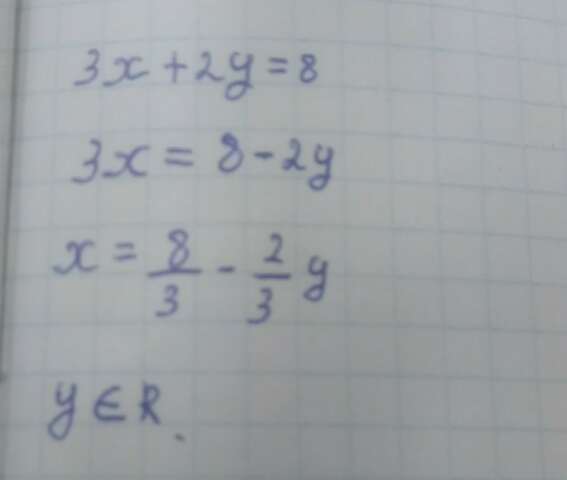 3x + 2y = 8
3x = 8 - 2y
x = 8/3 - 2/3 y
y ∈ R.